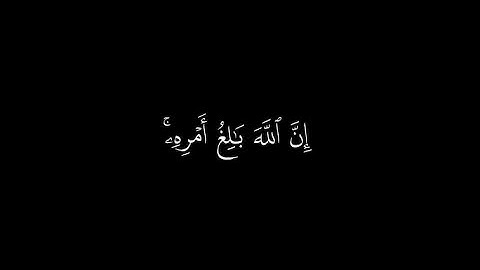 إِنَّ ٱللَّهَ بَـٰلِغُ أَمْرِهِۦ ۚ